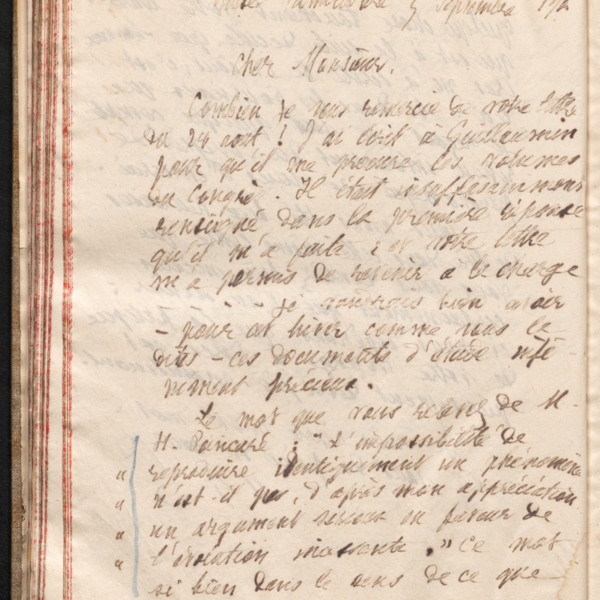 septembre
Cher Monsieur.
Combien je vous remercie de votre lettre
du 29 aout ! J'ai écrit à Guillaumin
pour qu'il me procure les volumes
du Congrès. Il était insuffisamment
renseigné dans la première réponse
qu'il m'a faite : or votre lettre
m'a permis de revenir à la charge
- Je voudrais bien avoir
- pour cet hiver comme vous le
dites - ces documents d'étude infi-
niment précieux.
Le mot que vous relevez de M.
H. Poincaré : "L'impossibilité de
" reproduire identiquement un phénomène
" n'est-il pas, d'après mon appréciation
" un argument sérieux en faveur de
" l'évolution incessante." Ce mot
si bien dans le sens de ce que